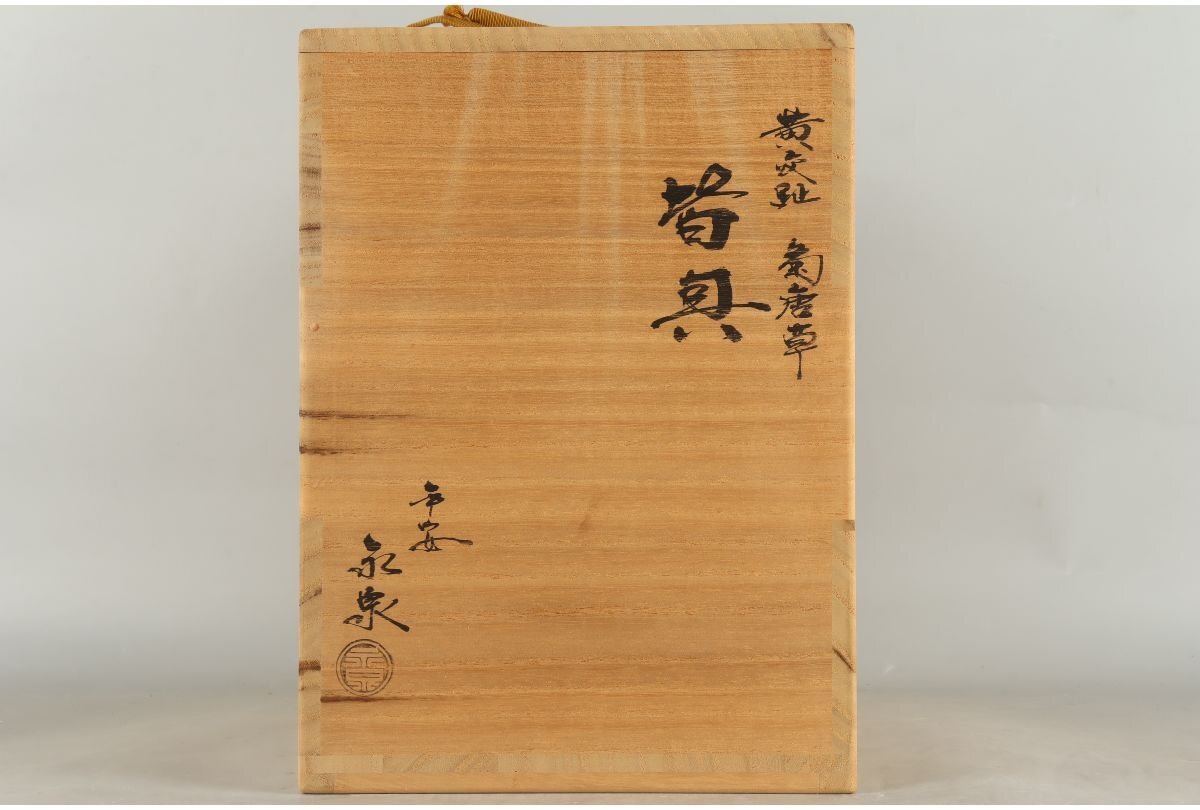 黄交趾 菊唐草
皆具
平安
永泉